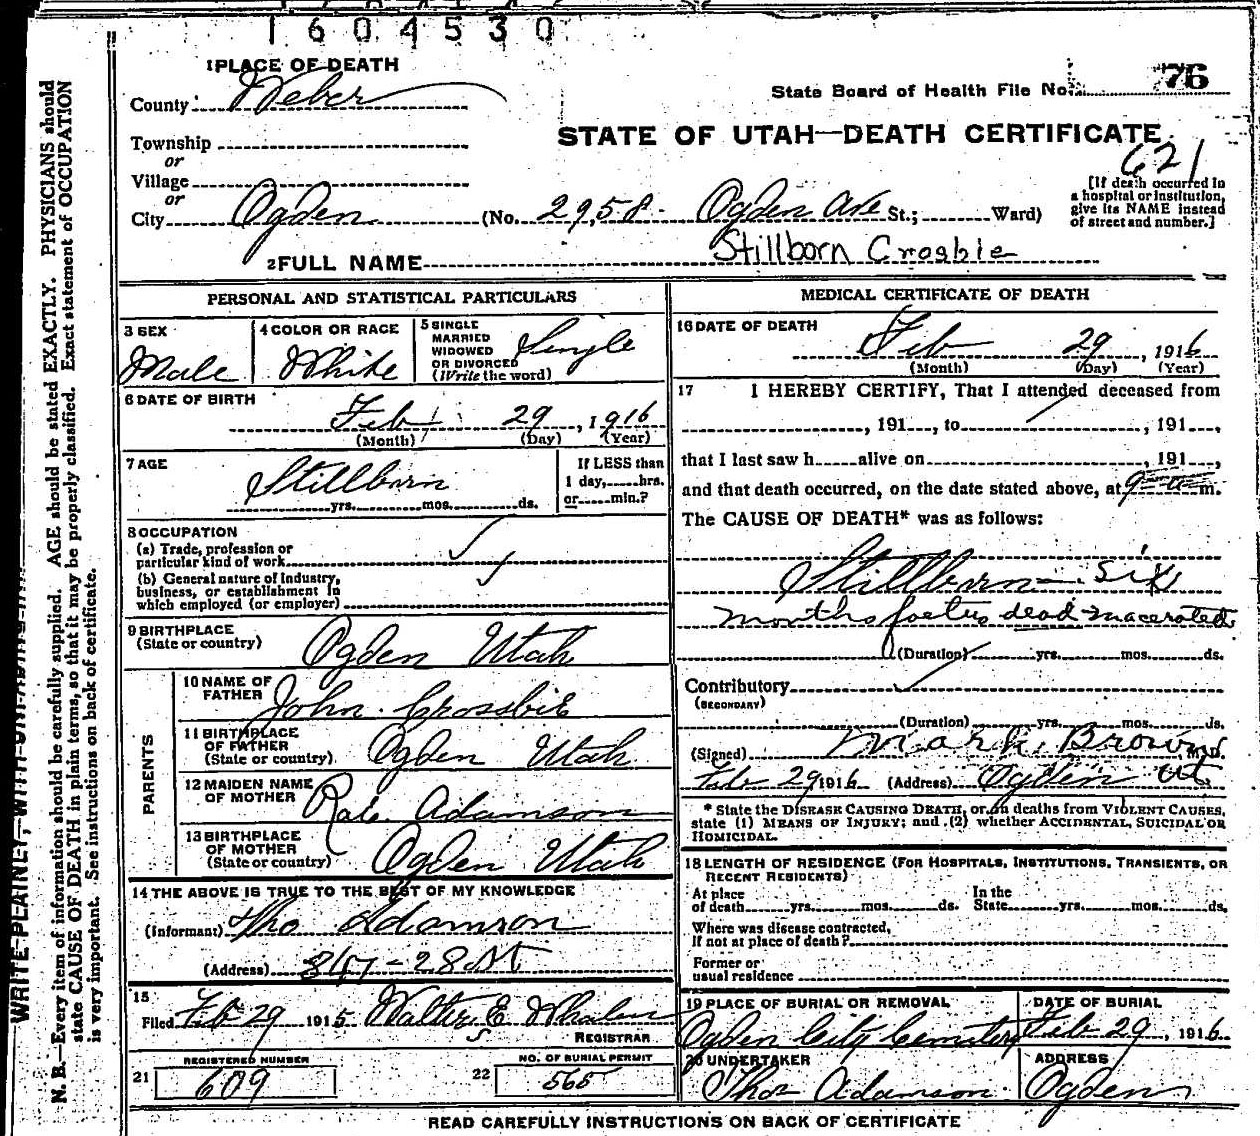 1604530
1 PLACE OF DEATH
County Weber
State Board of Health File No. 76
STATE OF UTAH—DEATH CERTIFICATE
Township
or
Village
or
City Ogden (No. 2958 Ogden Ave St.; Ward)
621
[If death occurred in
a hospital or institution,
give its NAME instead
of street and number.]
2 FULL NAME Stillborn Crosbie
PERSONAL AND STATISTICAL PARTICULARS
3 SEX
Male
4 COLOR OR RACE
White
5 SINGLE
MARRIED
WIDOWED
OR DIVORCED
(Write the word)
Single
6 DATE OF BIRTH
Feb 29, 1916
(Month) (Day) (Year)
7 AGE
Stillborn
yrs. mos. ds.
If LESS than
1 day, hrs.
or min.?
8 OCCUPATION
(a) Trade, profession or
particular kind of work
(b) General nature of Industry,
business, or establishment in
which employed (or employer)
9 BIRTHPLACE
(State or country)
Ogden Utah
PARENTS
10 NAME OF
FATHER
John Crossbie
11 BIRTHPLACE
OF FATHER
(State or country)
Ogden Utah
12 MAIDEN NAME
OF MOTHER
Adamson
13 BIRTHPLACE
OF MOTHER
(State or country)
Ogden Utah
14 THE ABOVE IS TRUE TO THE BEST OF MY KNOWLEDGE
(Informant) Tho Adamson
(Address) 847-28 St
15
Filed Feb 29 1915 Walter E Whalen
REGISTRAR
REGISTERED NUMBER
21 609
NO. OF BURIAL PERMIT
22 565
MEDICAL CERTIFICATE OF DEATH
16 DATE OF DEATH
Feb 29, 1916
(Month) (Day) (Year)
17 I HEREBY CERTIFY, That I attended deceased from
, 191 , to , 191 ,
that I last saw h alive on , 191 ,
and that death occurred, on the date stated above, at 9 a m.
The CAUSE OF DEATH* was as follows:
Stillborn - six
months foetus dead - macerated
(Duration) yrs. mos. ds.
Contributory
(SECONDARY)
(Duration) yrs. mos. ds.
(Signed) Mark Brown
Feb 29 1916 (Address) Ogden Ut
* State the DISEASE CAUSING DEATH, or, in deaths from VIOLENT CAUSES,
state (1) MEANS OF INJURY; and (2) whether ACCIDENTAL, SUICIDAL OR
HOMICIDAL.
18 LENGTH OF RESIDENCE (FOR HOSPITALS, INSTITUTIONS, TRANSIENTS, OR
RECENT RESIDENTS)
At place
of death yrs. mos. ds.
In the
State yrs. mos. ds.
Where was disease contracted,
If not at place of death?
Former or
usual residence
19 PLACE OF BURIAL OR REMOVAL
Ogden City Cemetery
DATE OF BURIAL
Feb 29, 1916
20 UNDERTAKER
Thos Adamson
ADDRESS
Ogden
READ CAREFULLY INSTRUCTIONS ON BACK OF CERTIFICATE
N. B.—Every item of information should be carefully supplied. AGE should be stated EXACTLY. PHYSICIANS should
state CAUSE OF DEATH in plain terms, so that it may be properly classified. Exact statement of OCCUPATION
is very important. See instructions on back of certificate.
WRITE PLAINLY, WITH